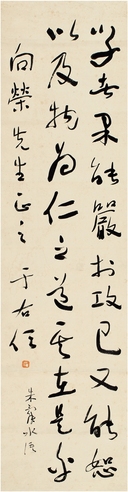 學者果能嚴於攻己又能恕
以及物為仁之道其在是乎
向榮先生正之 于右任